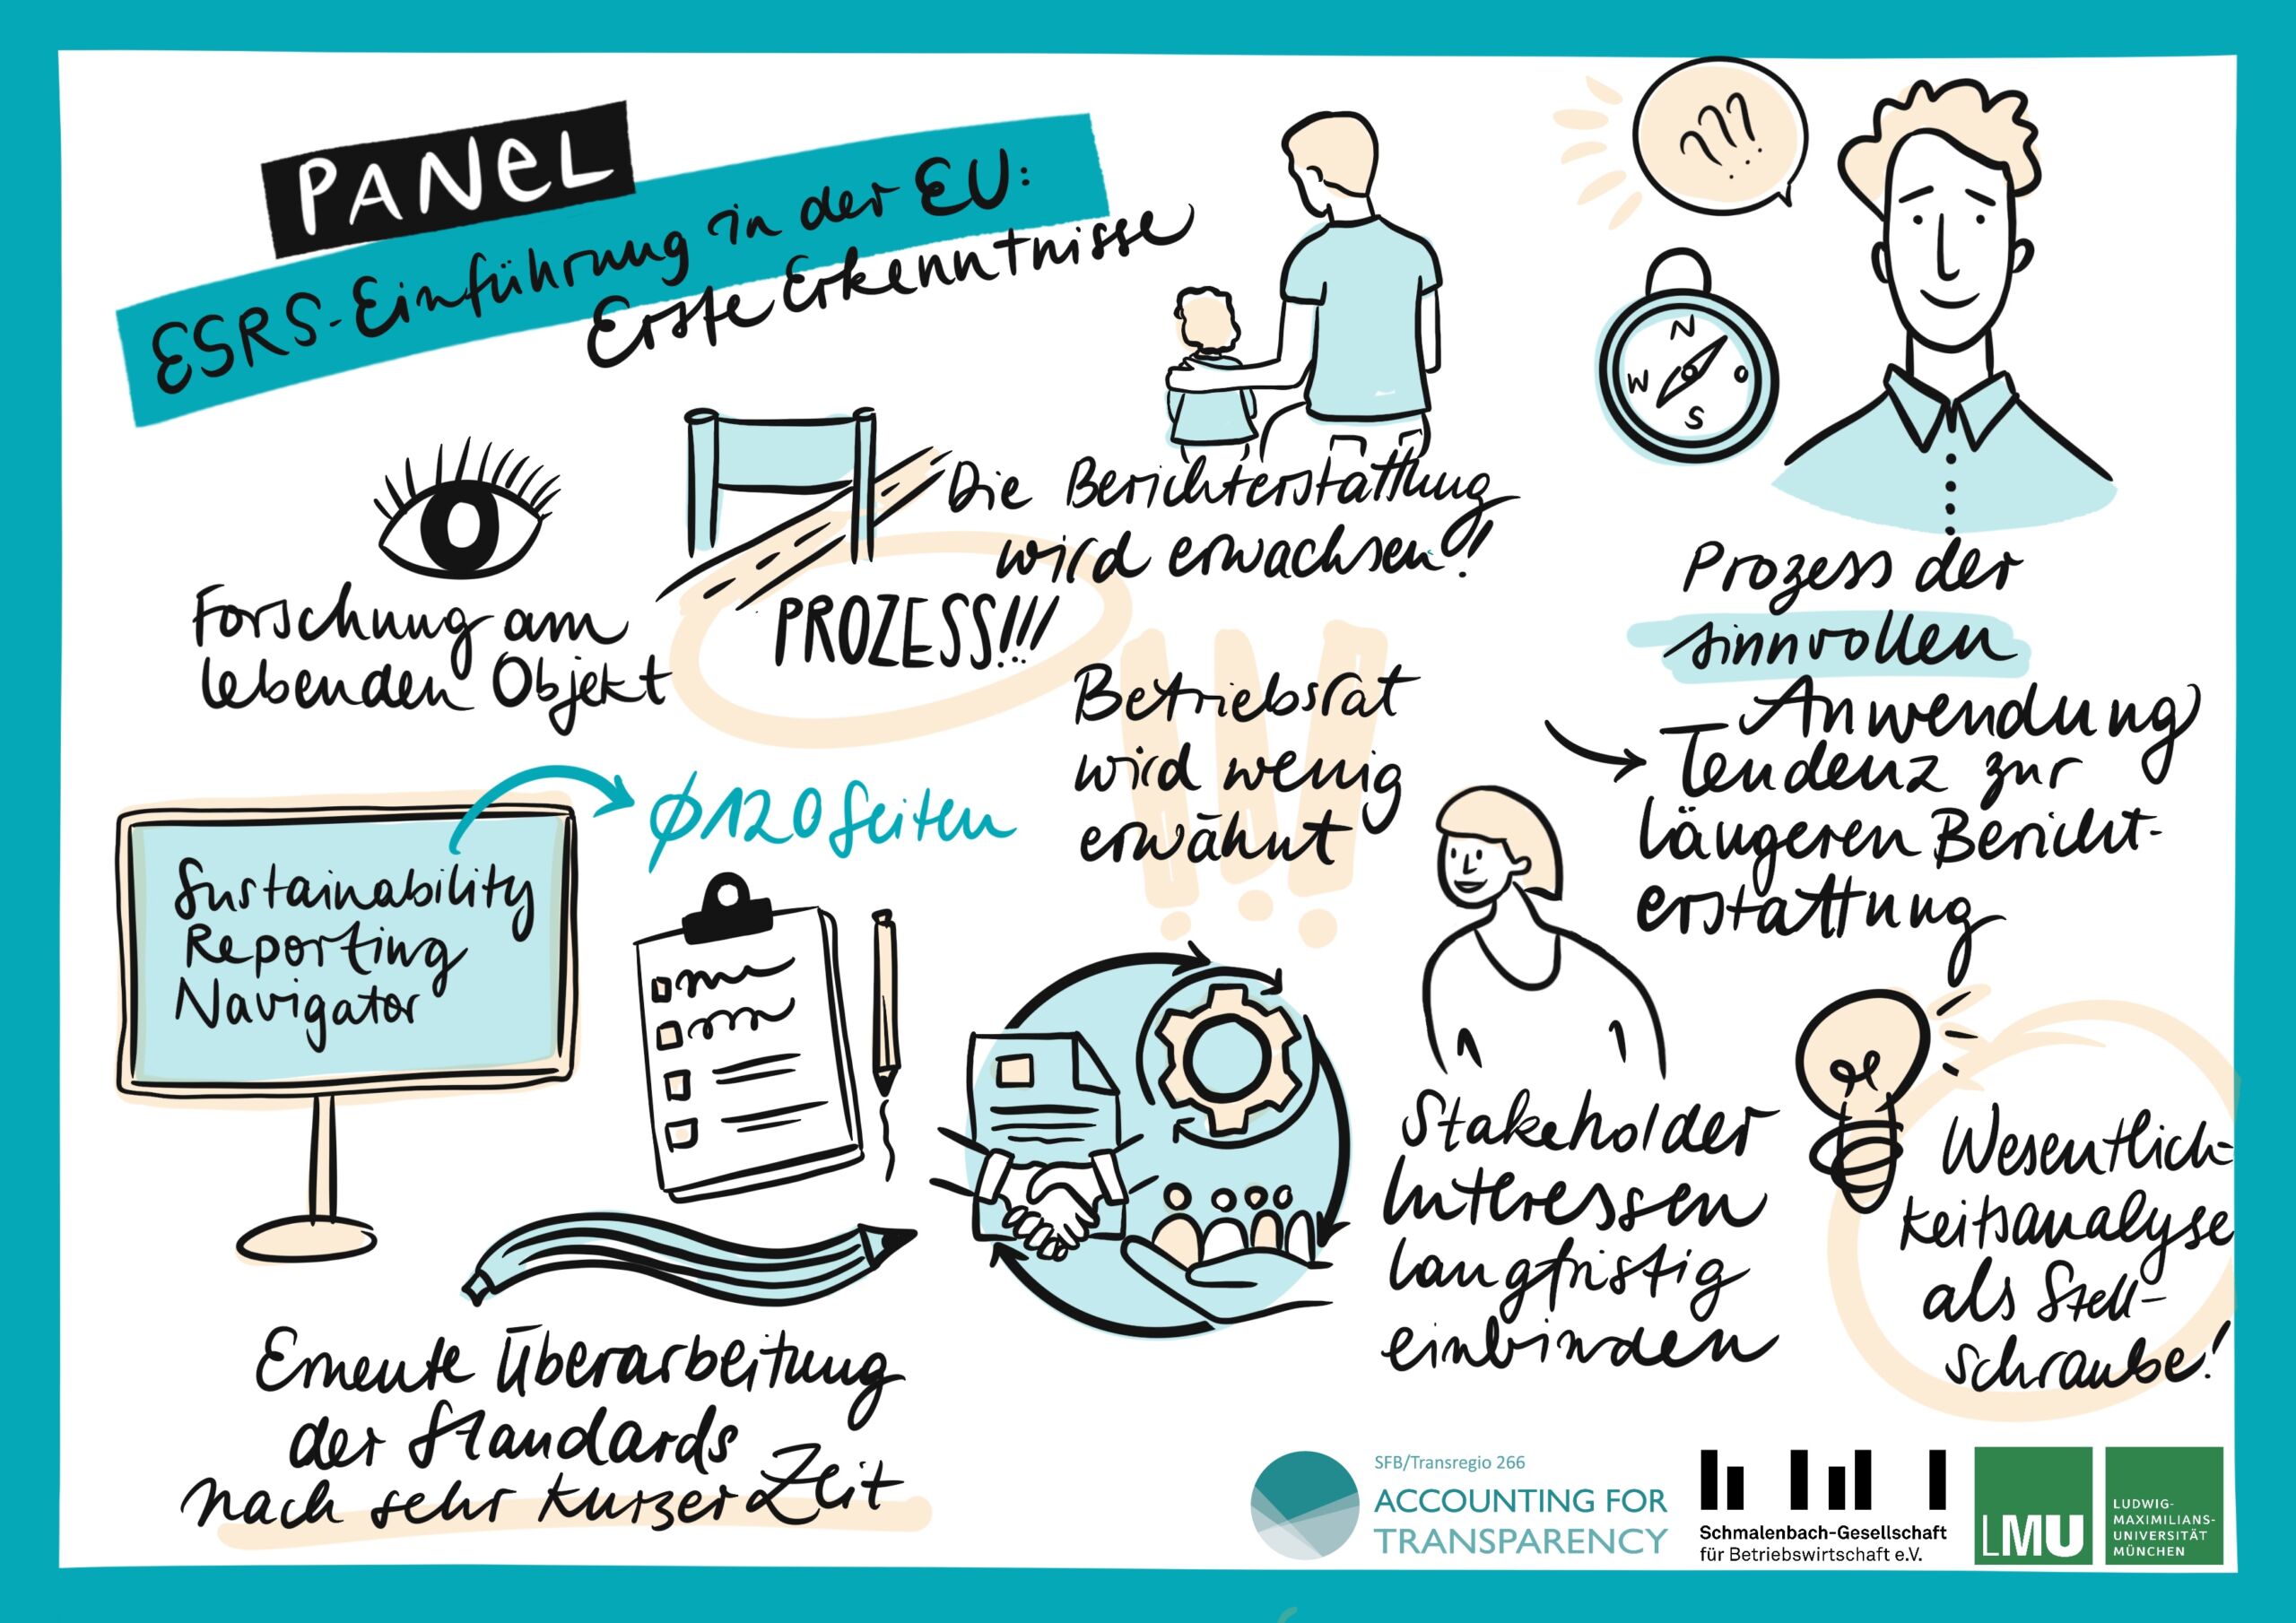 PANEL
ESRS-Einführung in der EU:
Erste Erkenntnisse
???
N
W
O
S
Die Berichterstattung
wird erwachsen!
Forschung am
lebenden Objekt
PROZESS!!!
Prozess der
sinnvollen
Anwendung
Tendenz zur
längeren Bericht-
erstattung
Betriebsrat
wird wenig
erwähnt
!!!
Ø120 Seiten
Sustainability
Reporting
Navigator
Stakeholder
Interessen
langfristig
einbinden
Wesentlich-
keitsanalyse
als Stell-
schraube!
Erneute Überarbeitung
der Standards
nach sehr kurzer Zeit
SFB/Transregio 266
ACCOUNTING FOR
TRANSPARENCY
Schmalenbach-Gesellschaft
für Betriebswirtschaft e.V.
LMU
LUDWIG-
MAXIMILIANS-
UNIVERSITÄT
MÜNCHEN